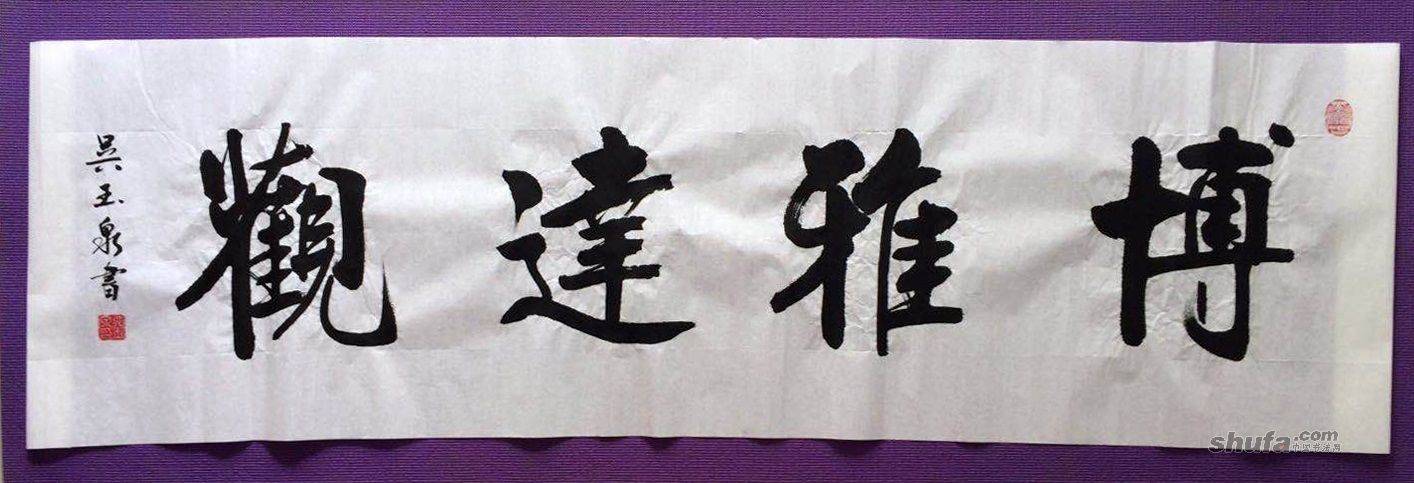 博雅達觀
吳玉泉書
shufa.com
中国书法网